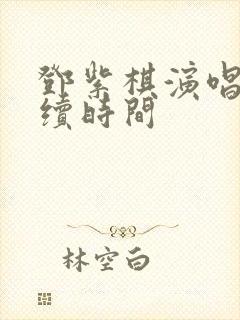 鄧紫棋演唱
續時間
林空白